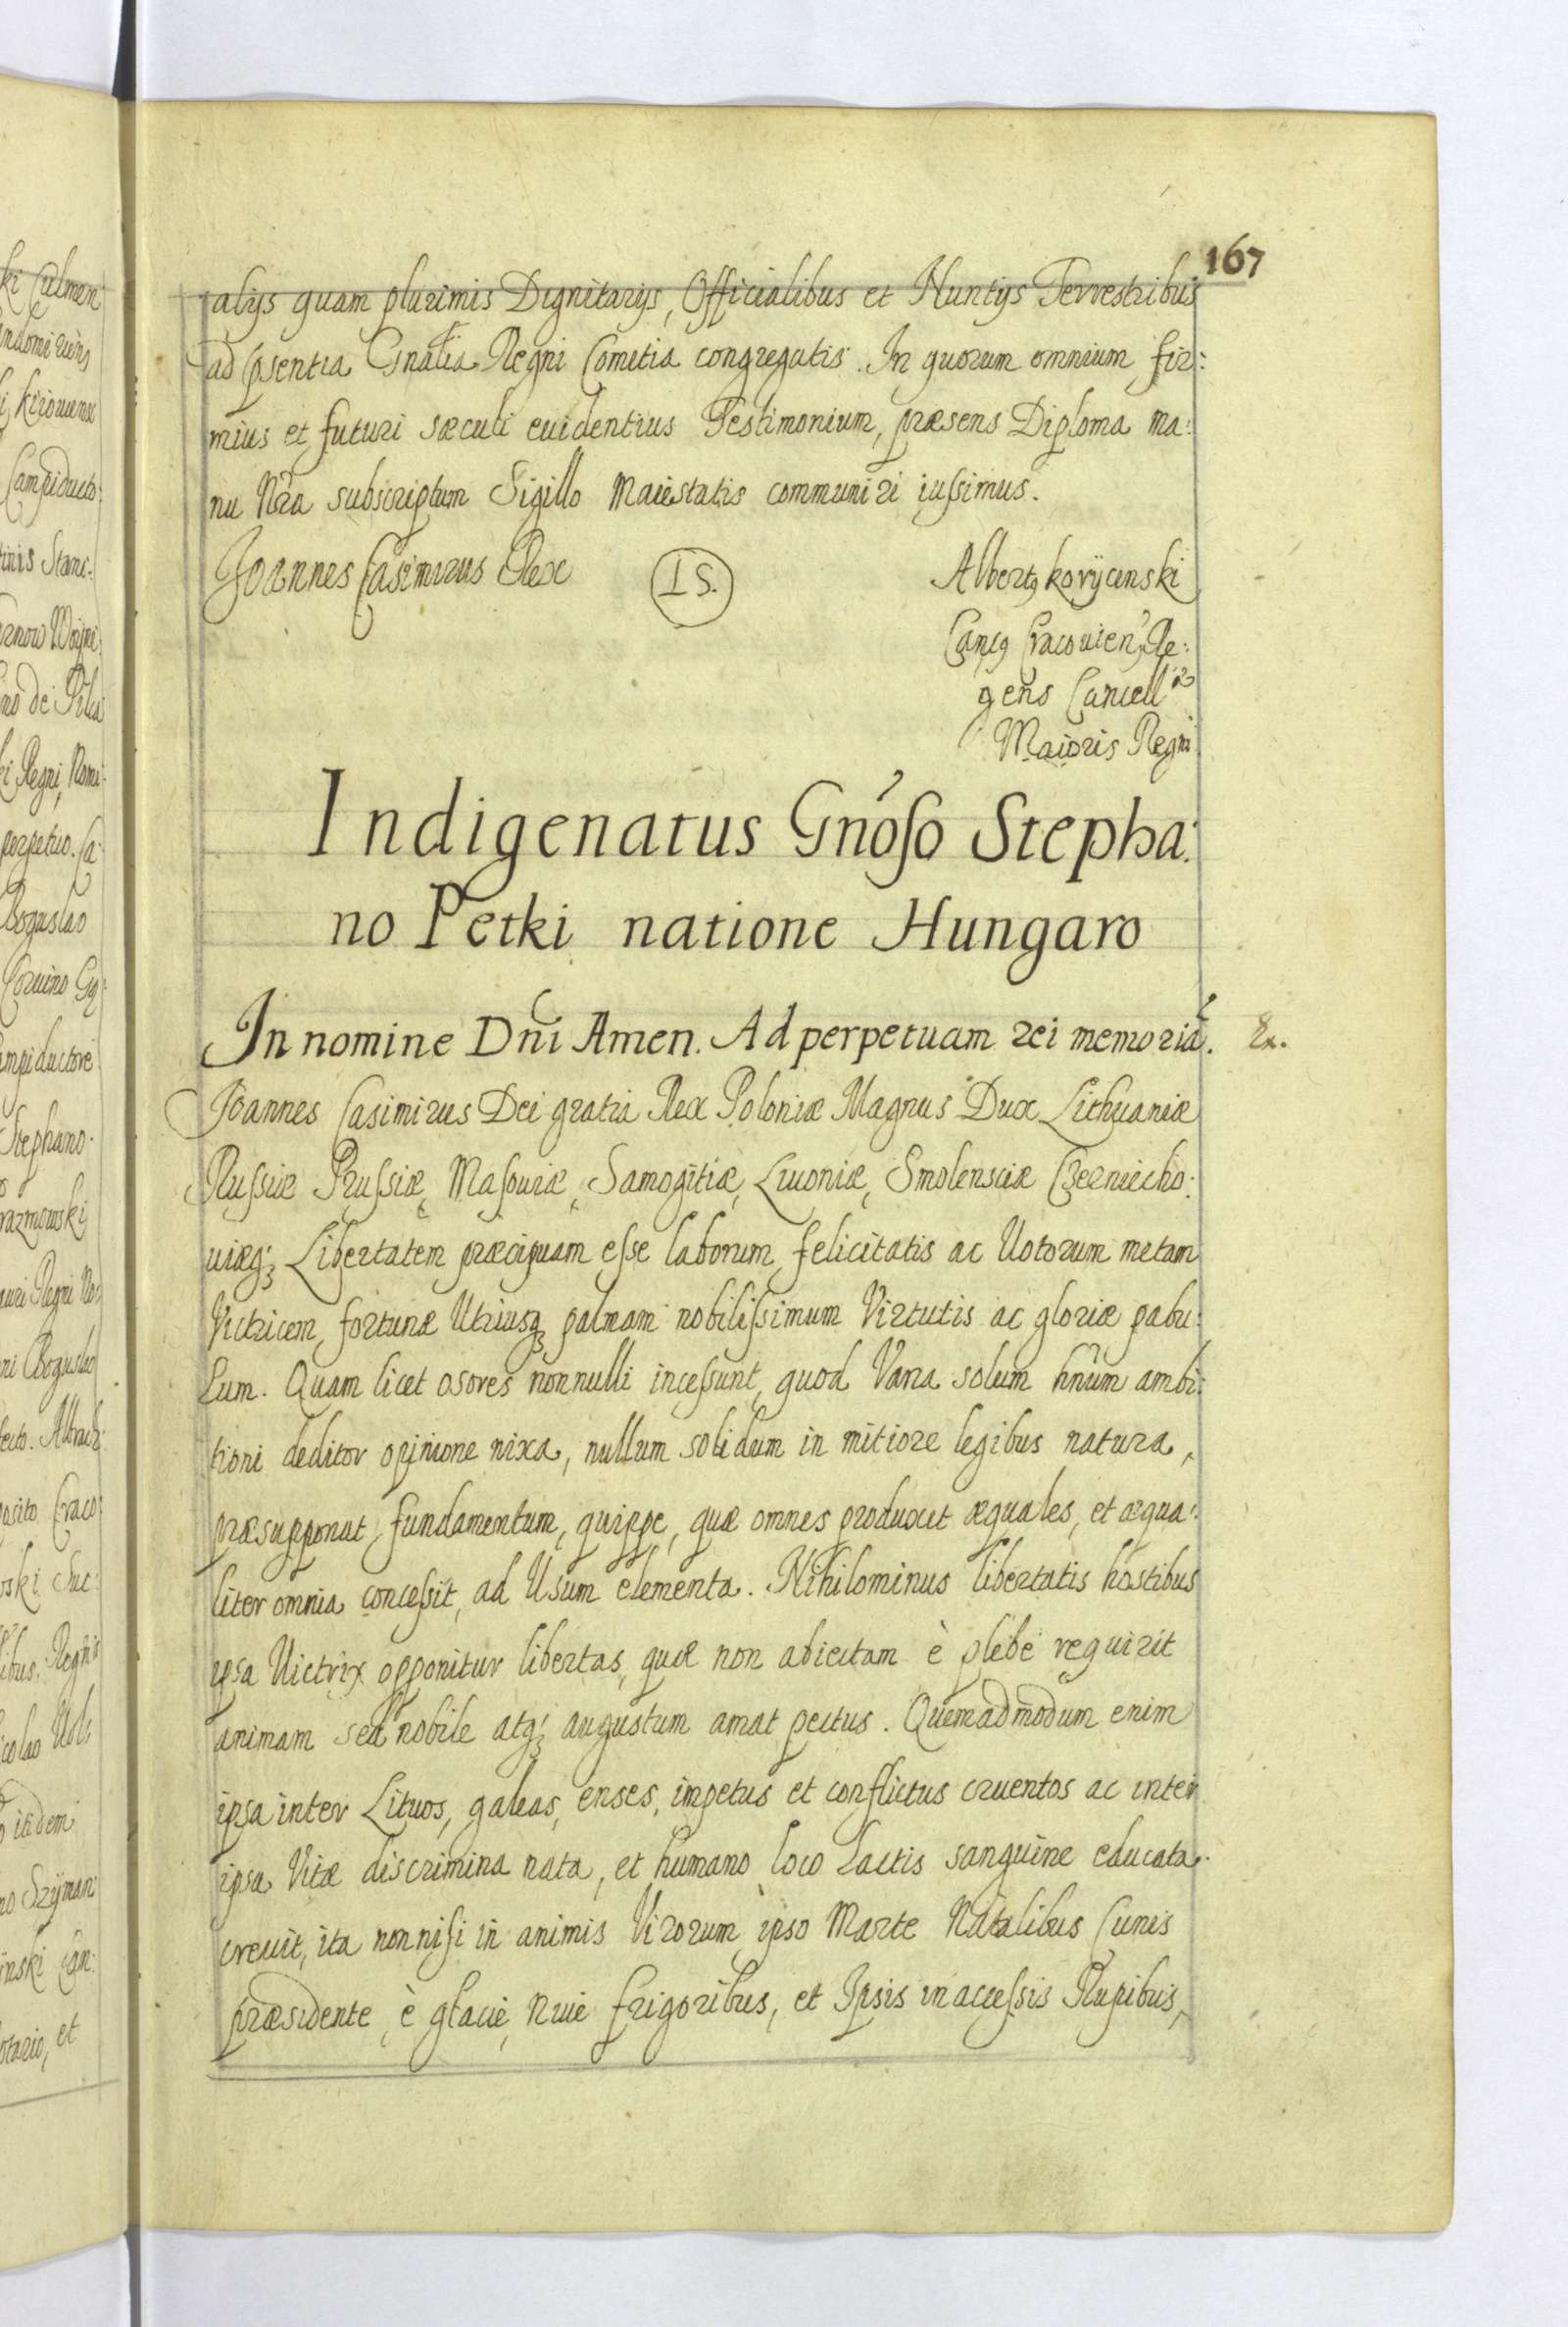 167
alijs quam plurimis Dignitarijs, Officialibus et Nuntijs Terrestribus
ad psentia Gnalia Regni Comitia congregatis. In quorum omnium fir:
mius et futuri sæculi euidentius Testimonium, præsens Diploma ma:
nu Nrã subscriptum Sigillo Maiestatis communiri iussimus.
Joannes Casimirus Rex
L S.
Albertꝰ korycinski
Cancꝰ Cracouien̄ Re:
gens Cancellᵃᵉ
Maioris Regni
Indigenatus Gnóso Stepha:
no Petki natione Hungaro
In nomine Dñi Amen. Ad perpetuam rei memoriã.
Ex.
Joannes Casimirus Dei gratia Rex Poloniæ Magnus Dux Lithuaniæ
Russiæ Prussiæ, Masouiæ, Samogitiæ, Liuoniæ, Smolensciæ Czerniecho:
uiæq; Libertatem præcipuam esse laborum, felicitatis ac Uotorum metam
Victricem, fortunæ Utriusq; palmam nobilissimum Virtutis ac gloriæ pabu:
lum. Quam licet osores nonnulli incessunt, quod Vana solum hñum ambi:
tioni deditor opinione nixa, nullum solidum in mitiore legibus natura,
præsupponat, fundamentum, quippe, quæ omnes produxit æquales, et æqua:
liter omnia concessit, ad Usum elementa. Nihilominus libertatis hostibus
ipsa Uictrix opponitur libertas, quæ non abiectam è plebe requirit
animam sed nobile atq; augustum amat pectus. Quemadmodum enim
ipsa inter Lituos, galeas, enses, impetus et conflictus cruentos ac inter
ipsa Vitæ discrimina nata, et humano loco Lactis sanguine educata
creuit, ita nonnisi in animis Virorum, ipso Marte Natalibus Cunis
præsidente, è glacie, Niue frigoribus, et Ipsis inaccessis Rupibus,